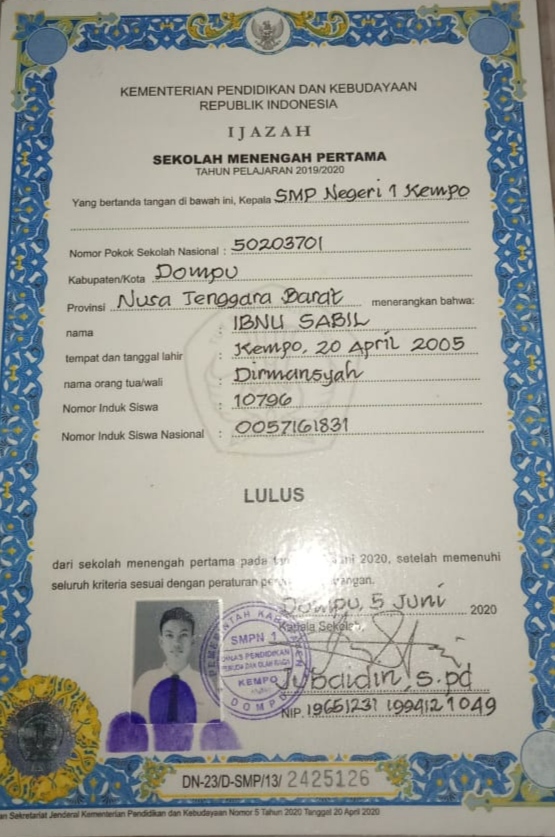 KEMENTERIAN PENDIDIKAN DAN KEBUDAYAAN
REPUBLIK INDONESIA
IJAZAH
SEKOLAH MENENGAH PERTAMA
TAHUN PELAJARAN 2019/2020
Yang bertanda tangan di bawah ini, Kepala SMP Negeri 1 Kempo
Nomor Pokok Sekolah Nasional : 50203701
Kabupaten/Kota Dompu
Provinsi Nusa Tenggara Barat menerangkan bahwa:
nama : IBNU SABIL
tempat dan tanggal lahir : Kempo, 20 April 2005
nama orang tua/wali : Dirmansyah
Nomor Induk Siswa : 10796
Nomor Induk Siswa Nasional : 0057161831
LULUS
dari sekolah menengah pertama pada 2020, setelah memenuhi
seluruh kriteria sesuai dengan peraturan
Dompu, 5 Juni 2020
Kepala Sekolah,
PEMERINTAH KABUPATEN
SMPN 1
DINAS PENDIDIKAN
PEMUDA DAN OLAH RAGA
KEMPO
DOMPU
Jubaidin, S.pd
NIP. 19651231 199412 1 049
DN-23/D-SMP/13/ 2425126
an Sekretariat Jenderal Kementerian Pendidikan dan Kebudayaan Nomor 5 Tahun 2020 Tanggal 20 April 2020